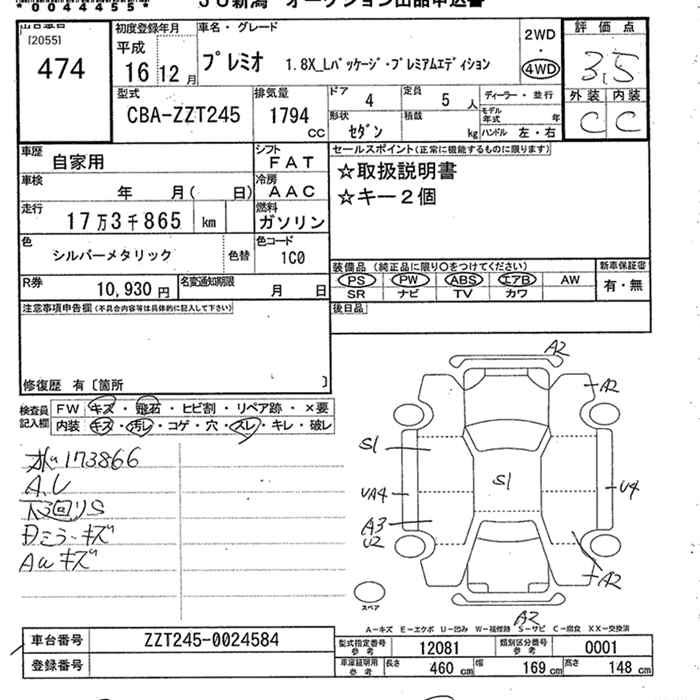 *0044455*
JU新潟 オークション出品申込書
出品番号
[2055]
474
初度登録年月
平成
16 12 月
車名・グレード
プレミオ 1.8X_Lパッケージ・プレミアムエディション
2WD
・
4WD
評価点
3.5
外装 内装
C C
型式
CBA-ZZT245
排気量
1794 CC
ドア 4
定員 5 人
ディーラー・並行
形状 セダン
積載 kg
モデル年式 年
ハンドル 左・右
車歴 自家用
シフト FAT
セールスポイント(正常に機能するものに限ります)
☆取扱説明書
☆キー2個
車検 年 月( 日)
冷房 AAC
走行 17万3千865 km
燃料 ガソリン
色 シルバーメタリック 色替
色コード 1C0
装備品 (純正品に限り○をつけてください)
新車保証書
PS PW ABS エアB AW
有・無
SR ナビ TV カワ
R券 10,930 円
名変通知期限 月 日
注意事項申告欄(不具合内容等は具体的に記入して下さい)
後日品
修復歴 有〔箇所 〕
検査員記入欄
FW キズ・飛石・ヒビ割・リペア跡・×要
内装 キズ・汚レ・コゲ・穴・スレ・キレ・破レ
173866
A,U
下回りS
Aw キズ
A2
A2
S1
S1
UA4
U4
A3
U2
A2
A2
スペア
A-キズ E-エクボ U-凹み W-補修跡 S-サビ C-腐食 XX-交換済
車台番号 ZZT245-0024584
登録番号
型式指定番号参考 12081
類別区分番号参考 0001
車庫証明用参考 長さ 460 cm 幅 169 cm 高さ 148 cm